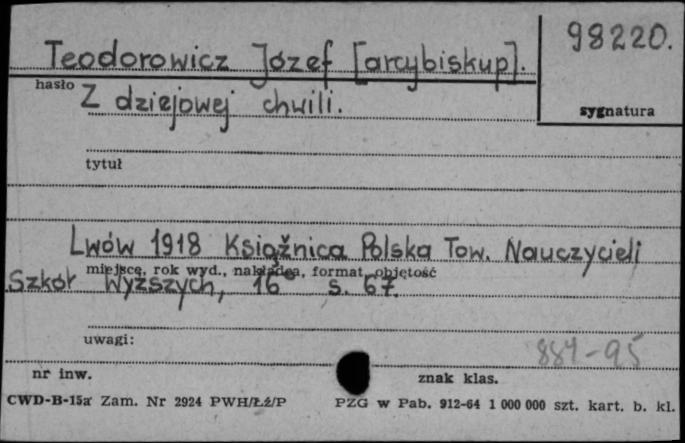 98220.
Teodorowicz Józef [arcybiskup].
hasło
sygnatura
Z dziejowej chwili.
tytuł
Lwów 1918 Książnica Polska Tow. Nauczycieli
miejsce, rok wyd., nakładca, format, objętość
Szkół Wyższych, 16° s. 67.
uwagi:
884-95
nr inw.
znak klas.
CWD-B-15a Zam. Nr 2924 PWH/Łź/P PZG w Pab. 912-64 1 000 000 szt. kart. b. kl.